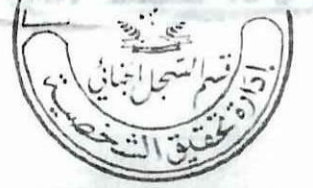 قسم السجل الجنائي
إدارة تحقيق الشخصية